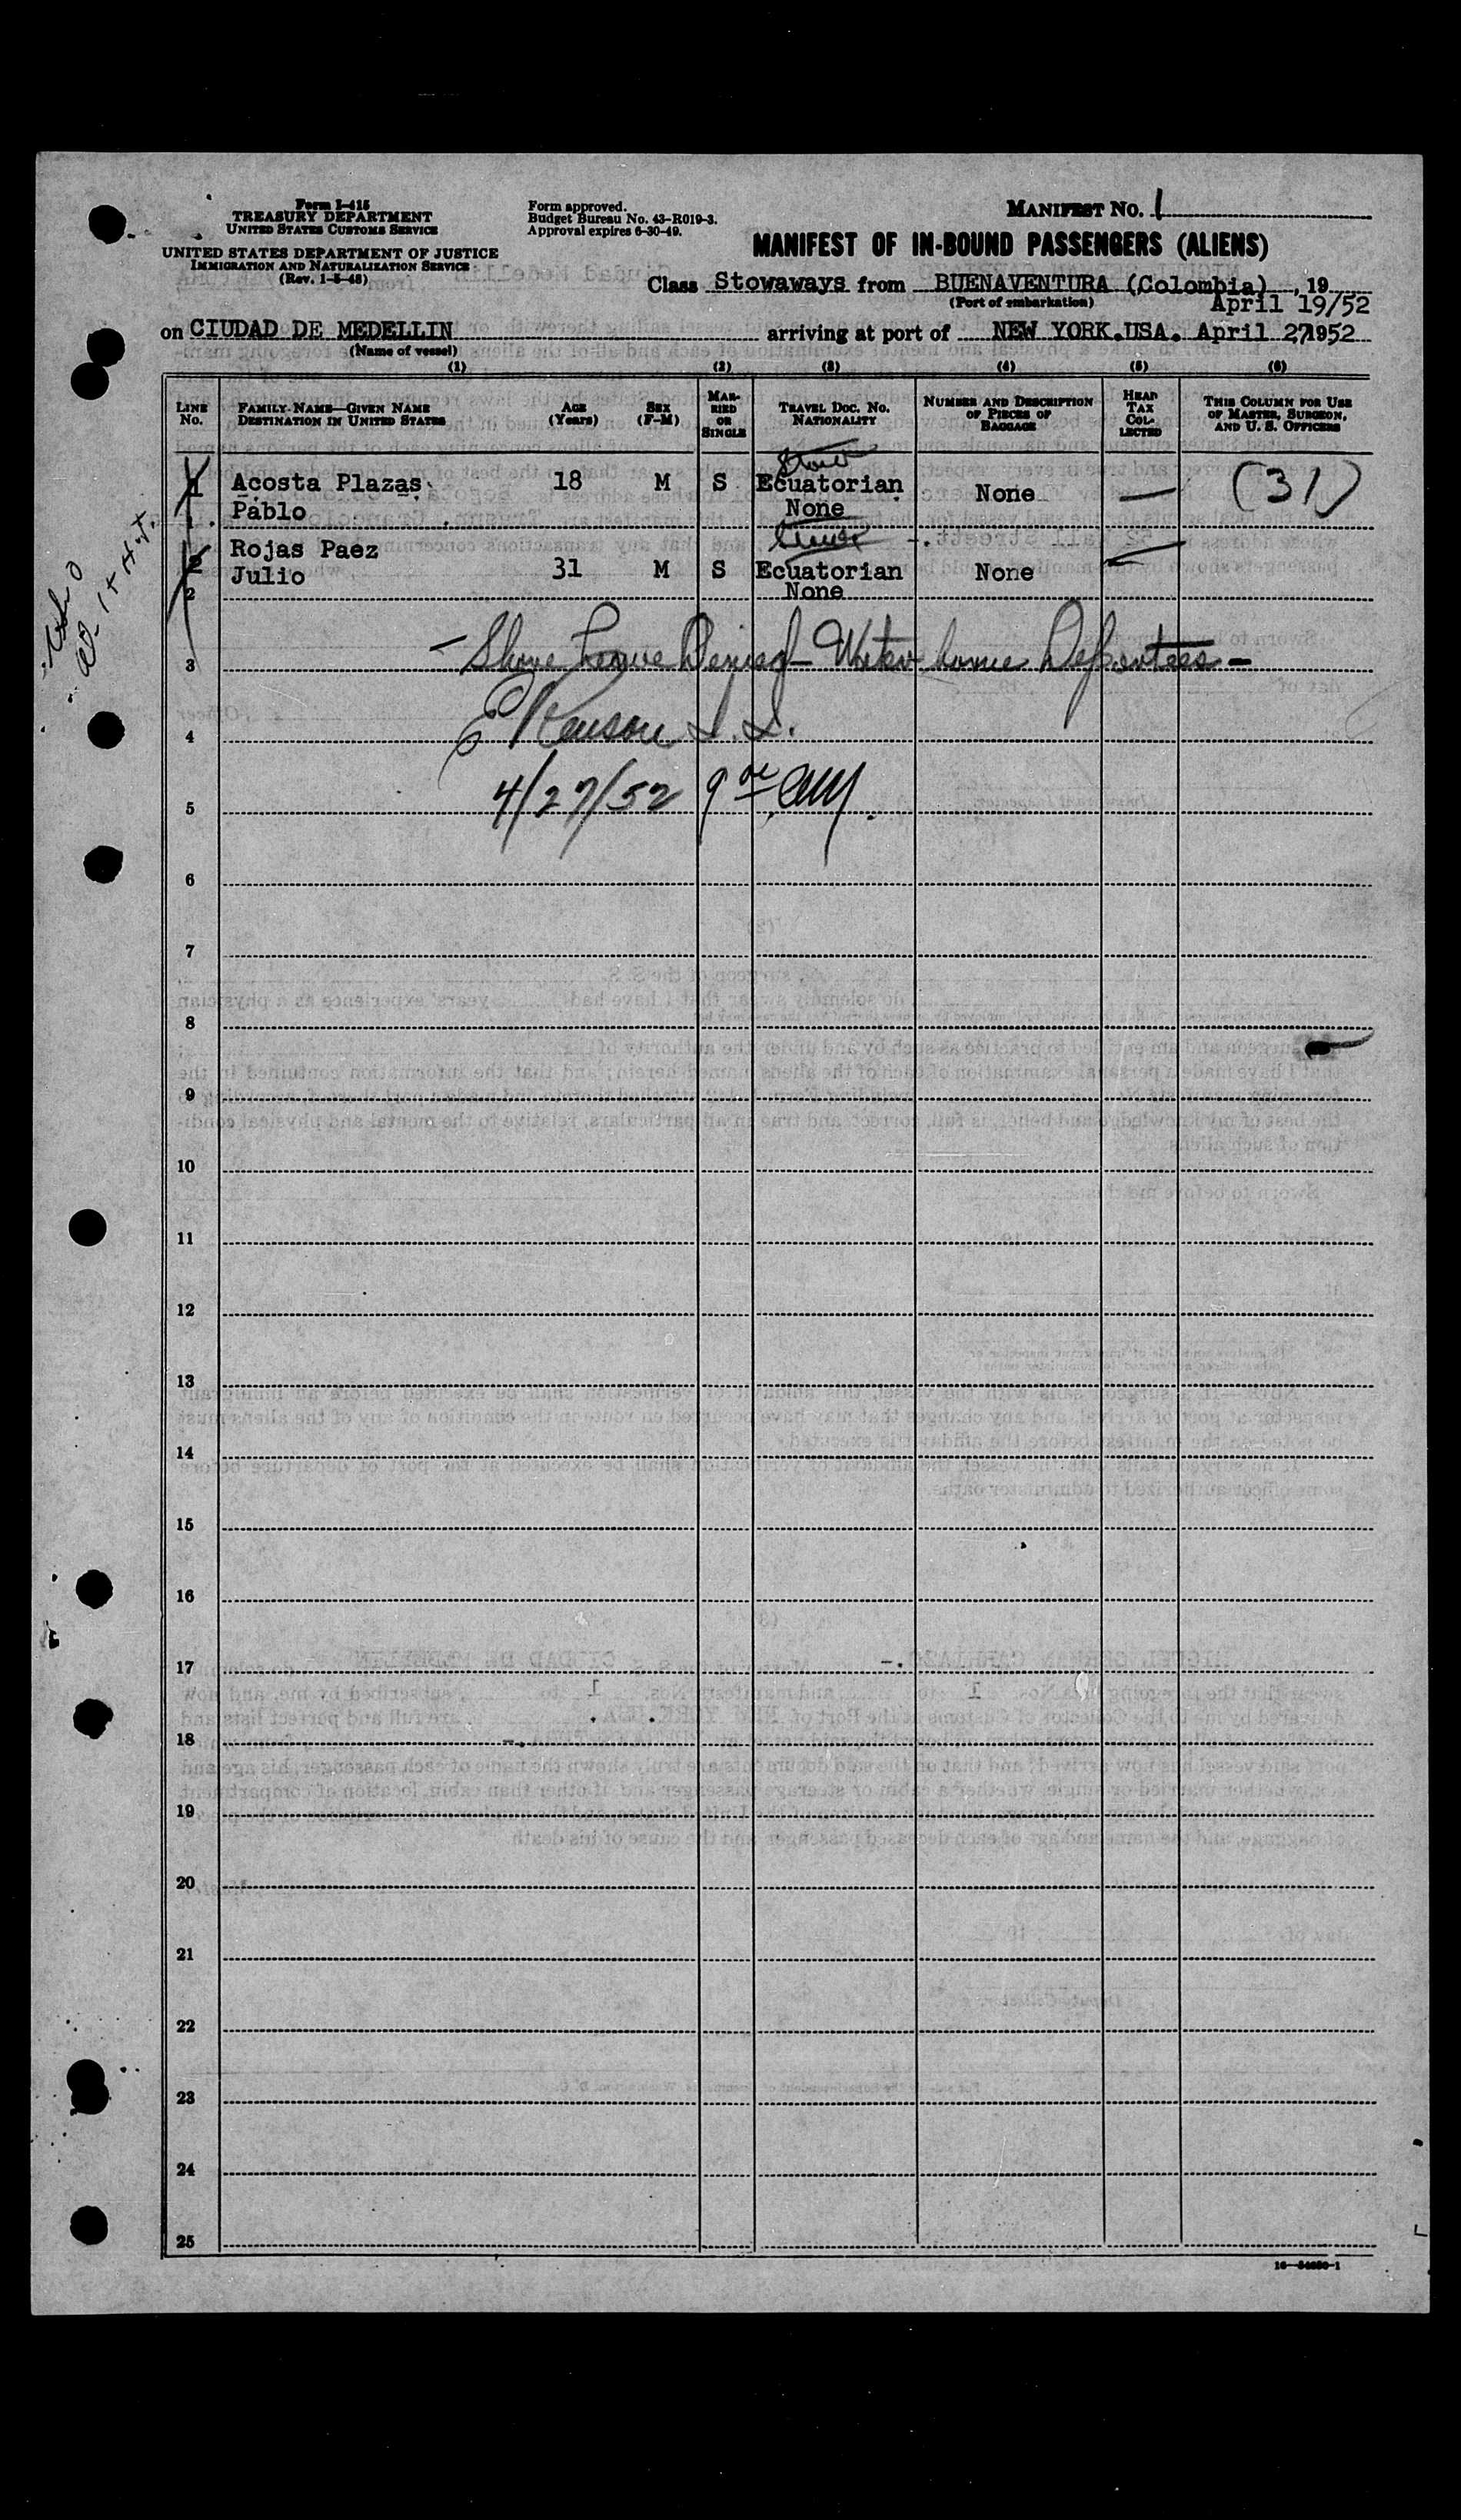 Form I-415
TREASURY DEPARTMENT
UNITED STATES CUSTOMS SERVICE
UNITED STATES DEPARTMENT OF JUSTICE
IMMIGRATION AND NATURALIZATION SERVICE
(Rev. 1-5-48)
Form approved.
Budget Bureau No. 43-R019-3.
Approval expires 6-30-49.
MANIFEST No. 1
MANIFEST OF IN-BOUND PASSENGERS (ALIENS)
Class Stowaways from BUENAVENTURA (Colombia), 19
(Port of embarkation) April 19/52
on CIUDAD DE MEDELLIN arriving at port of NEW YORK.USA. April 27, 1952
(Name of vessel)
(1) (2) (3) (4) (5) (6)
LINE No. FAMILY NAME—GIVEN NAME DESTINATION IN UNITED STATES AGE (Years) SEX (F-M) MARRIED OR SINGLE TRAVEL DOC. No. NATIONALITY NUMBER AND DESCRIPTION OF PIECES OF BAGGAGE HEAD TAX COLLECTED THIS COLUMN FOR USE OF MASTER, SURGEON, AND U. S. OFFICERS
1 Acosta Plazas 18 M S Ecuatorian None — (31)
Pablo None
2 Rojas Paez
Julio 31 M S Ecuatorian None
2 None
3 - Shore Leave Denied - Deportees -
4
5 4/27/52 9 00 AM.
6
7
8
9
10
11
12
13
14
15
16
17
18
19
20
21
22
23
24
25